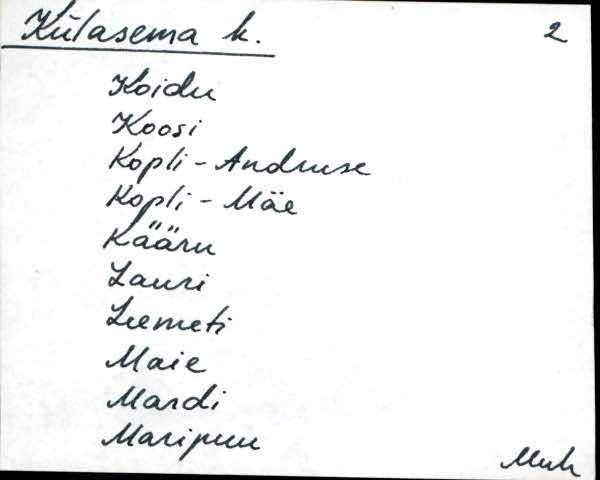 Külasema k. 2
Koidu
Koosi
Kopli-Andruse
Kopli-Mäe
Kääru
Lauri
Leemeti
Maie
Mardi
Maripuu
Muh